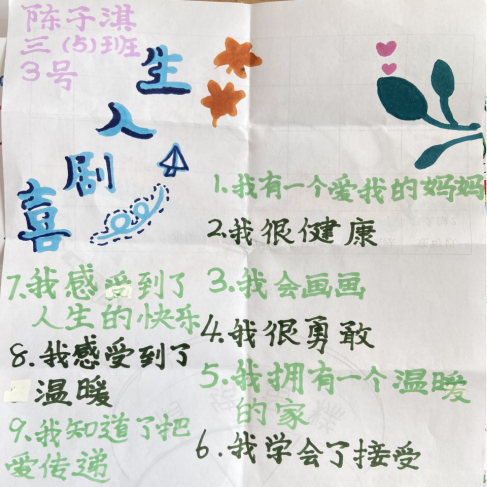 陈子淇
三(5)班
3号
喜剧人生
1.我有一个爱我的妈妈
2.我很健康
3.我会画画
4.我很勇敢
5.我拥有一个温暖
的家
6.我学会了接受
7.我感受到了
人生的快乐
8.我感受到了
温暖
9.我知道了把
爱传递